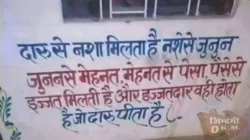 दारू से नशा मिलता है नशे से जुनून
जुनून से मेहनत, मेहनत से पैसा, पैसे से
इज्जत मिलती है और इज्जतदार वही होता
है जो दारू पीता है
ज़िन्दगी